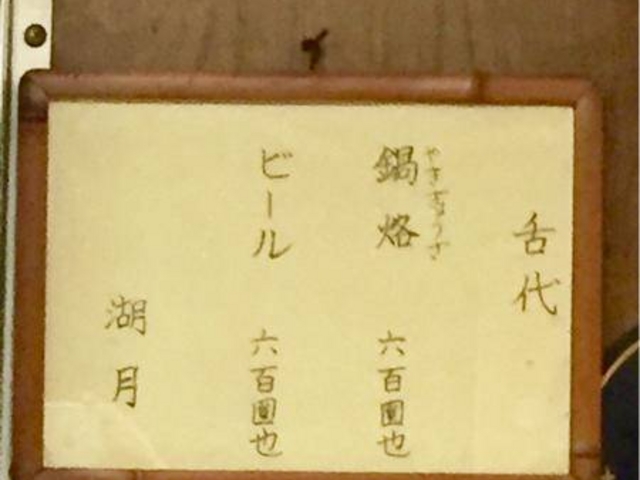 舌代
鍋烙 六百圓也
やきぎょうざ
ビール 六百圓也
湖月